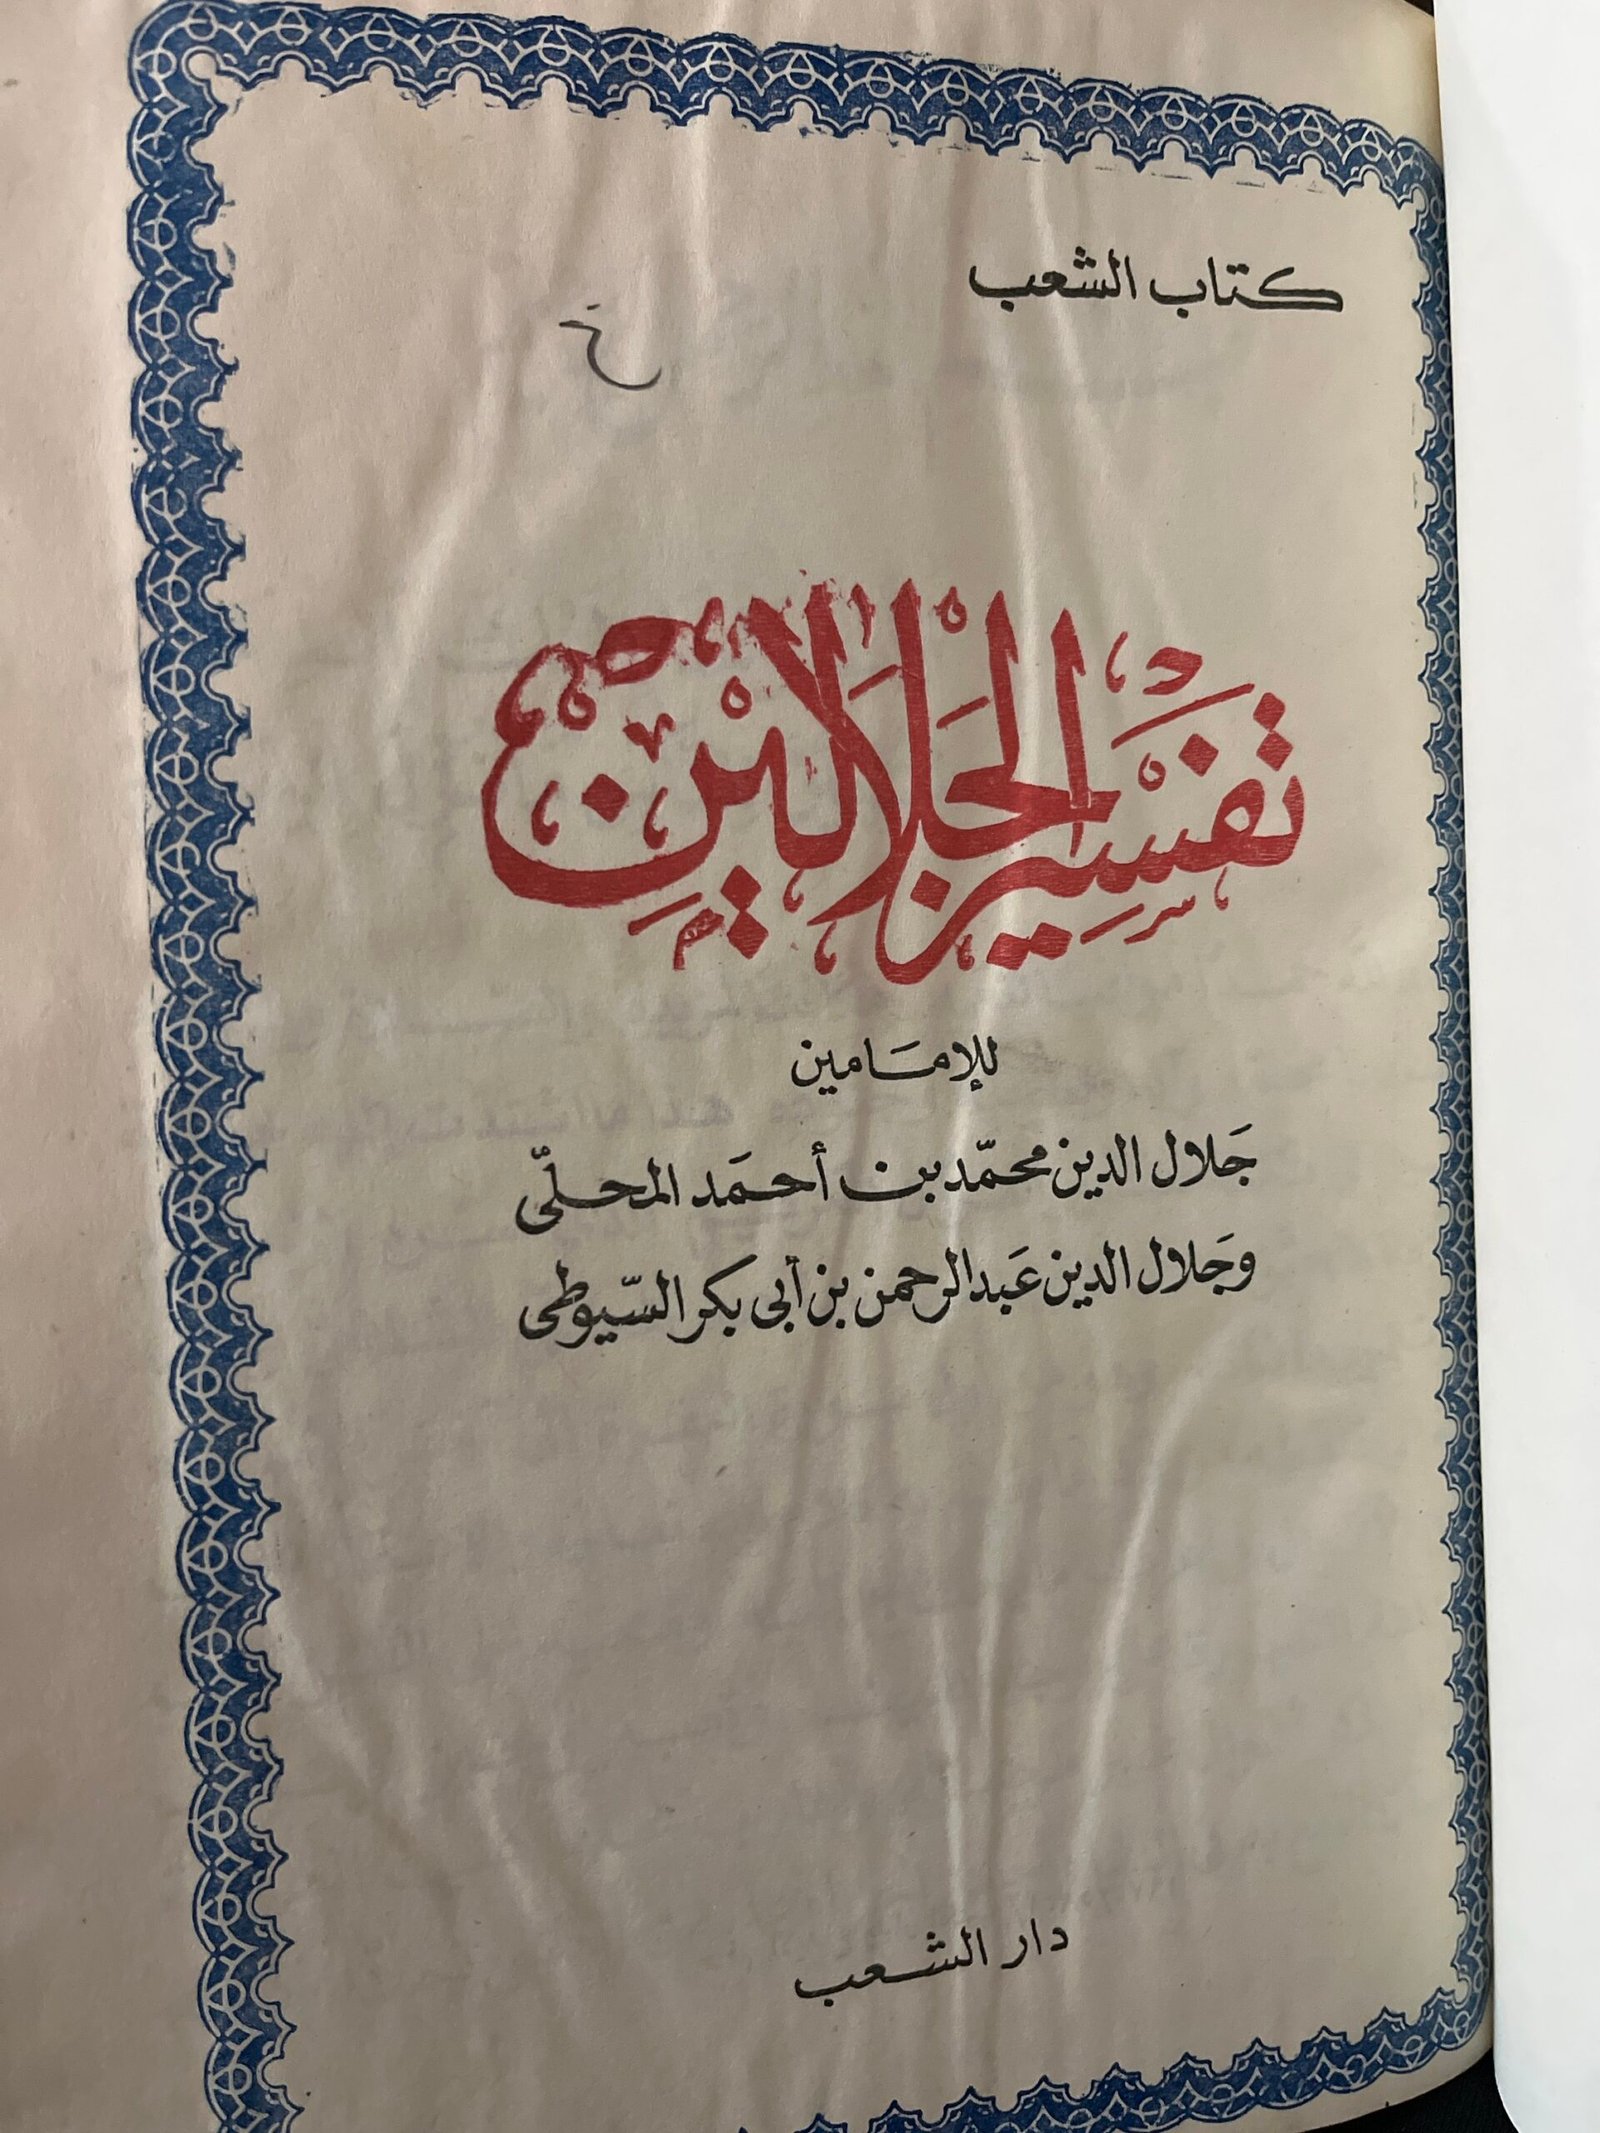 كتاب الشعب
تفسير الجلالين
للإمامين
جلال الدين محمد بن أحمد المحلى
وجلال الدين عبد الرحمن بن أبى بكر السيوطى
دار الشعب